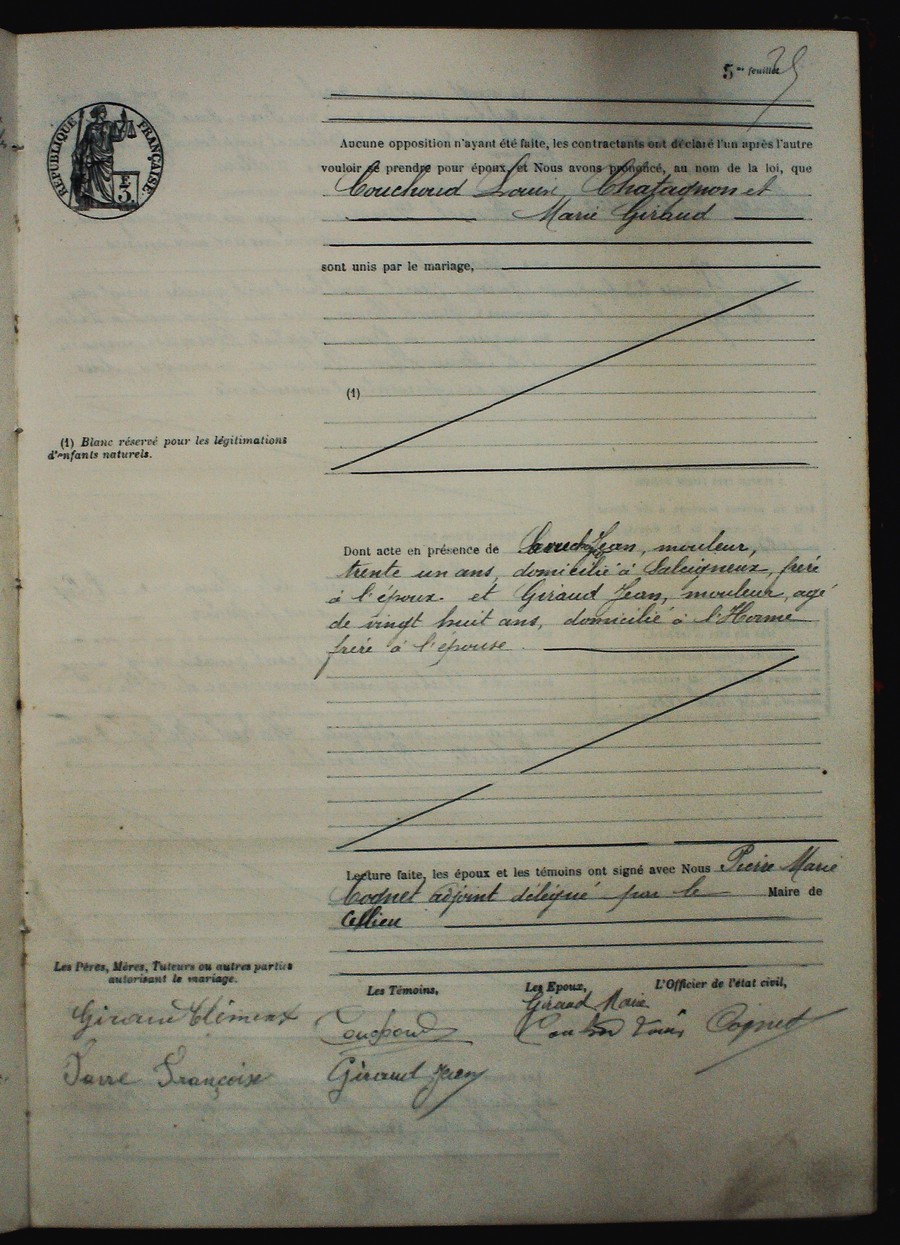 5me feuillet
RÉPUBLIQUE FRANÇAISE
E
3.
Aucune opposition n'ayant été faite, les contractants ont déclaré l'un après l'autre
vouloir se prendre pour époux, et Nous avons prononcé, au nom de la loi, que
Couchoud Louis, Chatagnon et
Marie Giraud
sont unis par le mariage,
(1)
(1) Blanc réservé pour les légitimations
d'enfants naturels.
Dont acte en présence de Jean, mouleur,
trente un ans, domicilié à Salcigneux, frére
à l'époux. et Giraud Jean, mouleur, agé
de vingt huit ans, domicilié à l'Horme
frére à l'épouse
Lecture faite, les époux et les témoins ont signé avec Nous Pierre Marie
Cognet adjoint délégué par le Maire de
Cellieu
Les Pères, Mères, Tuteurs ou autres parties
autorisant le mariage.
Les Témoins,
Les Epoux,
L'Officier de l'état civil,
Giraud Clément
Françoise
Couchoud
Giraud Jean
Giraud Marie
Louis
Cognet